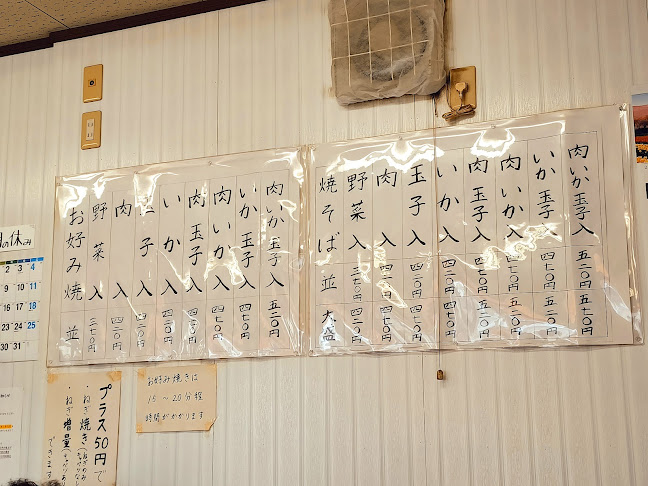 お好み焼 並
野菜入 三七〇円
肉入 四二〇円
玉子入 四二〇円
いか入 四二〇円
肉玉子入 四七〇円
肉いか入 四七〇円
いか玉子入 四七〇円
肉いか玉子入 五二〇円
焼そば 並 大盛
野菜入 三七〇円 四二〇円
肉入 四二〇円 四七〇円
玉子入 四二〇円 四七〇円
いか入 四二〇円 四七〇円
肉玉子入 四七〇円 五二〇円
肉いか入 四七〇円 五二〇円
いか玉子入 四七〇円 五二〇円
肉いか玉子入 五二〇円 五七〇円
の休み
2 3 4
9 10 11
16 17 18
23 24 25
30 31
プラス50円で
・ねぎ焼き
・ねぎ増量
できます
お好み焼きは
15〜20分程
時間がかかります